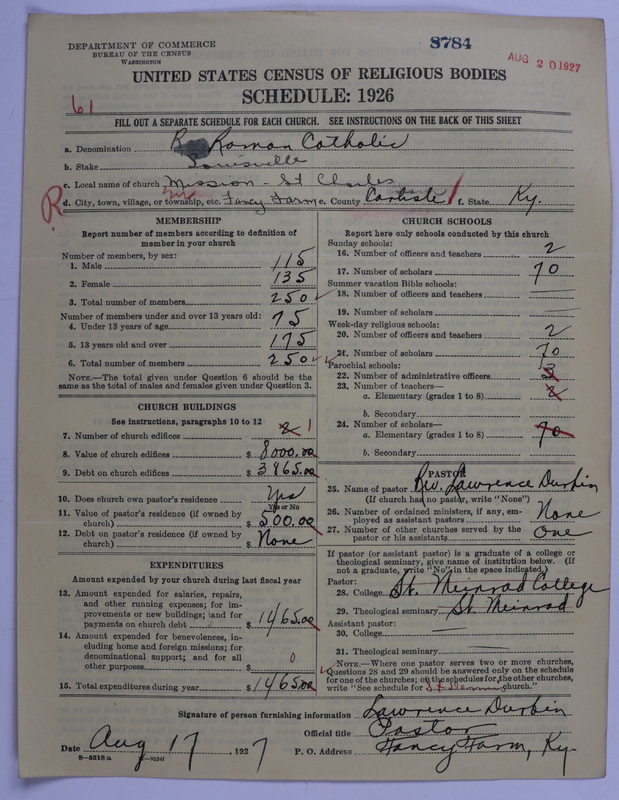 DEPARTMENT OF COMMERCE
BUREAU OF THE CENSUS
WASHINGTON
8784
AUG 20 1927
UNITED STATES CENSUS OF RELIGIOUS BODIES
SCHEDULE: 1926
61
FILL OUT A SEPARATE SCHEDULE FOR EACH CHURCH. SEE INSTRUCTIONS ON THE BACK OF THIS SHEET
a. Denomination R Roman Catholic
b. Stake Louisville
c. Local name of church Mission - St Charles
R
d. City, town, village, or township, etc. Fancy Farm e. County Carlisle f. State Ky.
MEMBERSHIP
Report number of members according to definition of
member in your church
Number of members, by sex:
1. Male 115
2. Female 135
3. Total number of members 250
Number of members under and over 13 years old:
4. Under 13 years of age 75
5. 13 years old and over 175
6. Total number of members 250
NOTE.—The total given under Question 6 should be the
same as the total of males and females given under Question 3.
CHURCH BUILDINGS
See instructions, paragraphs 10 to 12
7. Number of church edifices 2 1
8. Value of church edifices $ 8000.00
9. Debt on church edifices $ 3865.00
10. Does church own pastor's residence Yes
Yes or No
11. Value of pastor's residence (if owned by
church) $ 500.00
12. Debt on pastor's residence (if owned by
church) $ None
EXPENDITURES
Amount expended by church during last fiscal year
13. Amount expended for salaries, repairs,
and other running expenses; for im-
provements or new buildings; and for
payments on church debt $ 1465.00
14. Amount expended for benevolences, in-
cluding home and foreign missions; for
denominational support; and for all
other purposes $ 0
15. Total expenditures during year $ 1465.00
CHURCH SCHOOLS
Report here only schools conducted by this church
Sunday schools:
16. Number of officers and teachers 2
17. Number of scholars 70
Summer vacation Bible schools:
18. Number of officers and teachers —
19. Number of scholars —
Week-day religious schools:
20. Number of officers and teachers 2
21. Number of scholars 70
Parochial schools:
22. Number of administrative officers 3
23. Number of teachers—
a. Elementary (grades 1 to 8) 2
b. Secondary
24. Number of scholars—
a. Elementary (grades 1 to 8) 70
b. Secondary
PASTOR
25. Name of pastor Rev. Lawrence Durbin
(If church has no pastor, write "None")
26. Number of ordained ministers, if any, em-
ployed as assistant pastors None
27. Number of other churches served by the
pastor or his assistants One
If pastor (or assistant pastor) is a graduate of a college or
theological seminary, give name of institution below. (If
not a graduate, write "No" in the space indicated.)
Pastor:
28. College St. Meinrad College
29. Theological seminary St. Meinrad
Assistant pastor:
30. College —
31. Theological seminary —
NOTE.—Where one pastor serves two or more churches,
Questions 28 and 29 should be answered only on the schedule
for one of the churches; on the schedules for the other churches,
write "See schedule for St Dennis church."
Signature of person furnishing information Lawrence Durbin
Official title Pastor
Date Aug 17, 1927 P. O. Address Fancy Farm, Ky.
8—5518 a